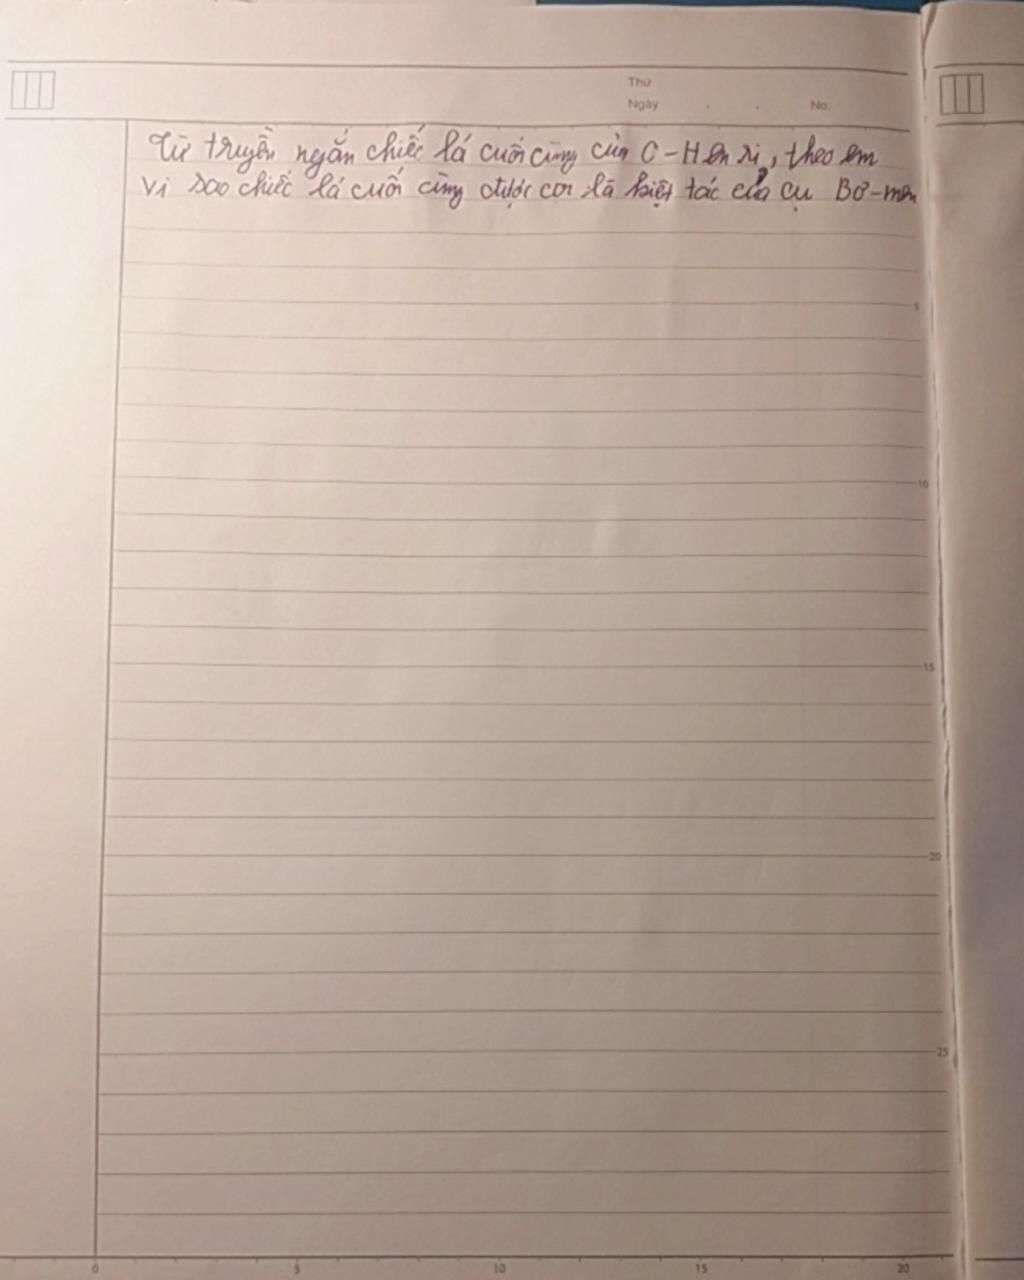 Thứ
Ngày . . No.
Từ truyền ngắn chiếc lá cuối cùng của O-Hen ri, theo em
vì sao chiếc lá cuối cùng được coi là kiệt tác của cụ Bơ-men
5
10
15
20
25
0 5 10 15 20